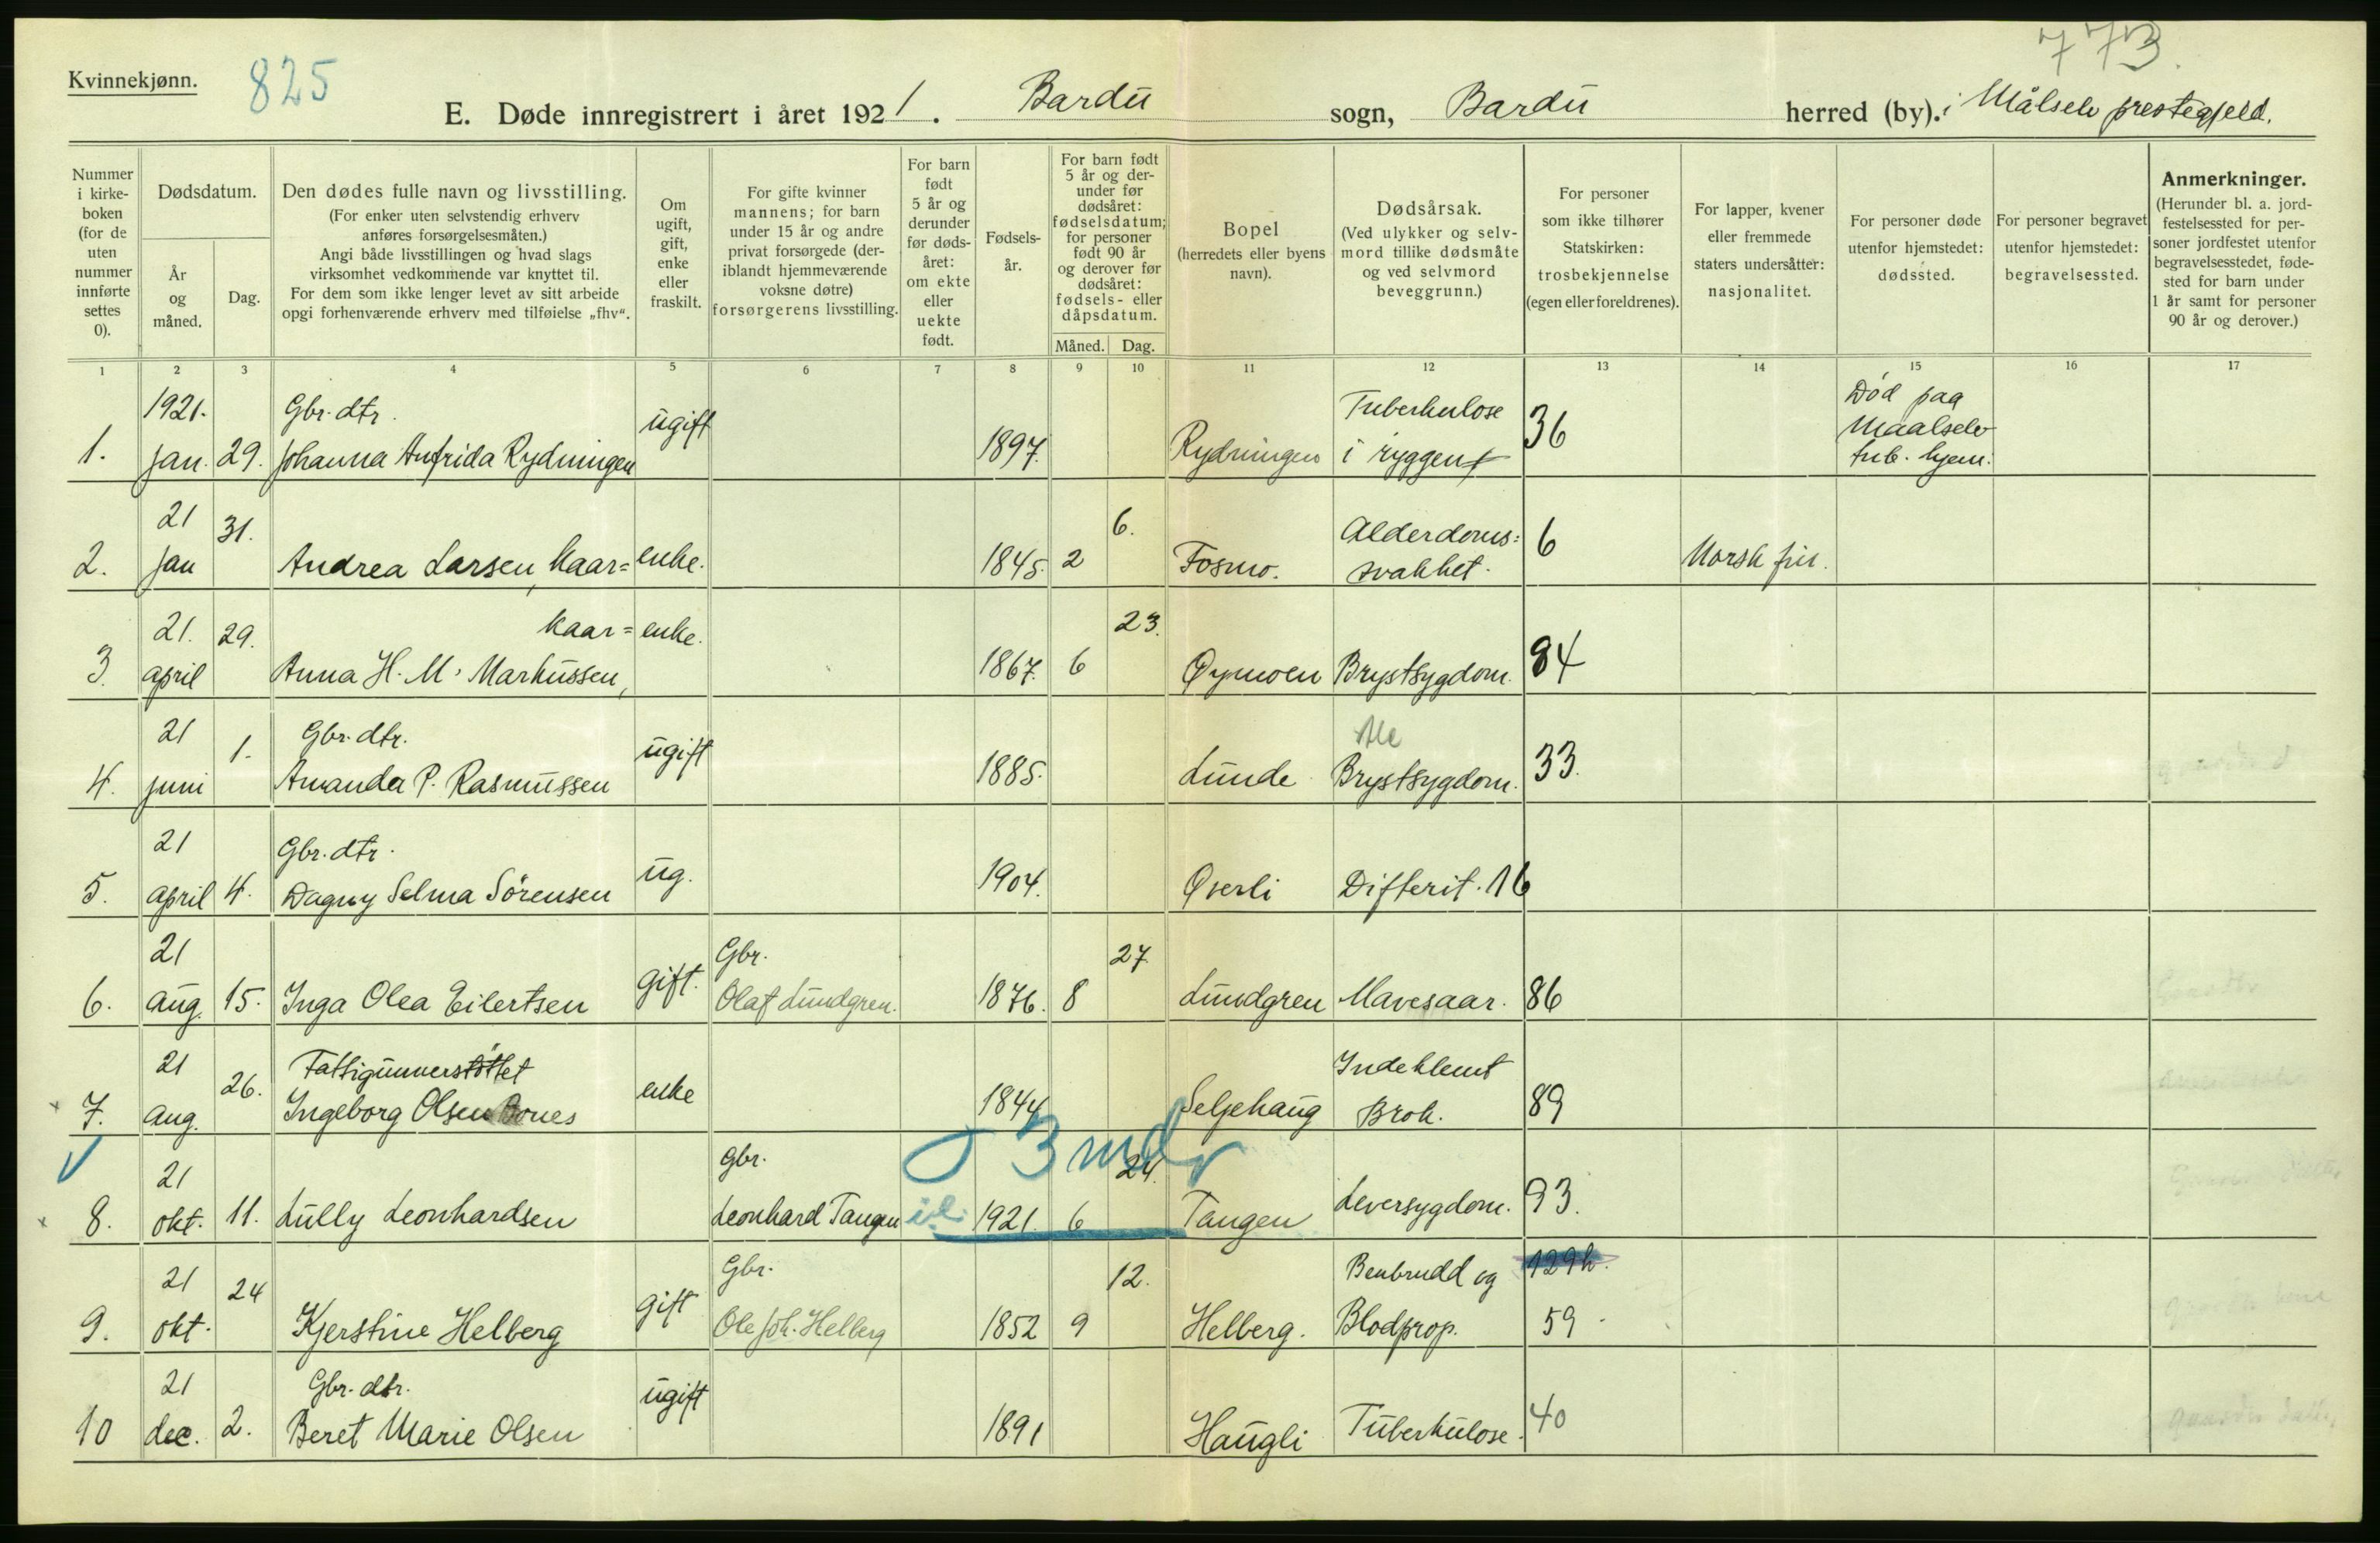 773.
Kvinnekjønn.
825
E. Døde innregistrert i året 1921. Bardu sogn, Bardu herred (by). i Målselv prestegjeld.
Nummer
i kirke-
boken
(for de
uten
nummer
innførte
settes
0).
Dødsdatum.
År
og
måned.
Dag.
Den dødes fulle navn og livsstilling.
(For enker uten selvstendig erhverv
anføres forsørgelsesmåten.)
Angi både livsstillingen og hvad slags
virksomhet vedkommende var knyttet til.
For dem som ikke lenger levet av sitt arbeide
opgi forhenværende erhverv med tilføielse „fhv“.
Om
ugift,
gift,
enke
eller
fraskilt.
For gifte kvinner
mannens; for barn
under 15 år og andre
privat forsørgede (der-
iblandt hjemmeværende
voksne døtre)
forsørgerens livsstilling.
For barn
født
5 år og
derunder
før døds-
året:
om ekte
eller
uekte
født.
Fødsels-
år.
For barn født
5 år og der-
under før
dødsåret:
fødselsdatum;
for personer
født 90 år
og derover før
dødsåret:
fødsels- eller
dåpsdatum.
Måned. Dag.
Bopel
(herredets eller byens
navn).
Dødsårsak.
(Ved ulykker og selv-
mord tillike dødsmåte
og ved selvmord
beveggrunn.)
For personer
som ikke tilhører
Statskirken:
trosbekjennelse
(egen eller foreldrenes).
For lapper, kvener
eller fremmede
staters undersåtter:
nasjonalitet.
For personer døde
utenfor hjemstedet:
dødssted.
For personer begravet
utenfor hjemstedet:
begravelsessted.
Anmerkninger.
(Herunder bl. a. jord-
festelsessted for per-
soner jordfestet utenfor
begravelsesstedet, føde-
sted for barn under
1 år samt for personer
90 år og derover.)
1 2 3 4 5 6 7 8 9 10 11 12 13 14 15 16 17
1921. Gbr. dtr. ugift Tuberkulose 36 Død paa
Maalselv
1. jan. 29. Johanna Anfrida Rydningen 1897. Rydningen i ryggen tub. hjem.
21 31. 6. Alderdoms: 6
2. jan Andrea Larsen, kaar= enke. 1845. 2 Fosmo. svakhet. Norsk fin.
21. 29. kaar= enke. 23. 84
3. april Anna H. M. Markussen, 1867. 6 Øymoen Brystsygdom.
21 1. Gbr. dtr. ugift 33.
4. juni Amanda P. Rasmussen 1885. Lunde Brystsygdom.
21 Gbr. dtr. ug.
5. april 4. Dagny Selma Sörensen 1904. Øverli Difterit. 16
21 gift. Gbr. 27
6. aug. 15. Inga Olea Eilertsen Olaf Lundgren. 1876. 8 Lundgren Mavesaar. 86
21 26. Fattigunnerstöttet enke Indeklemt
7. aug. Ingeborg Olsen Bones 1844 Seljehaug Brok. 89
3 mdr
21 Gbr. 24.
8. okt. 11. Lully Leonhardsen Leonhard Tangen 1921. 6 Tangen Leversygdom. 93.
21 24 gift Gbr. 12. Benbrudd og
9. okt. Kjerstine Helberg Ole Joh. Helberg 1852 9 Helberg. Blodprop. 59
21 Gbr. dtr. ugift 40
10 dec. 2. Beret Marie Olsen 1891 Haugli Tuberkulose.